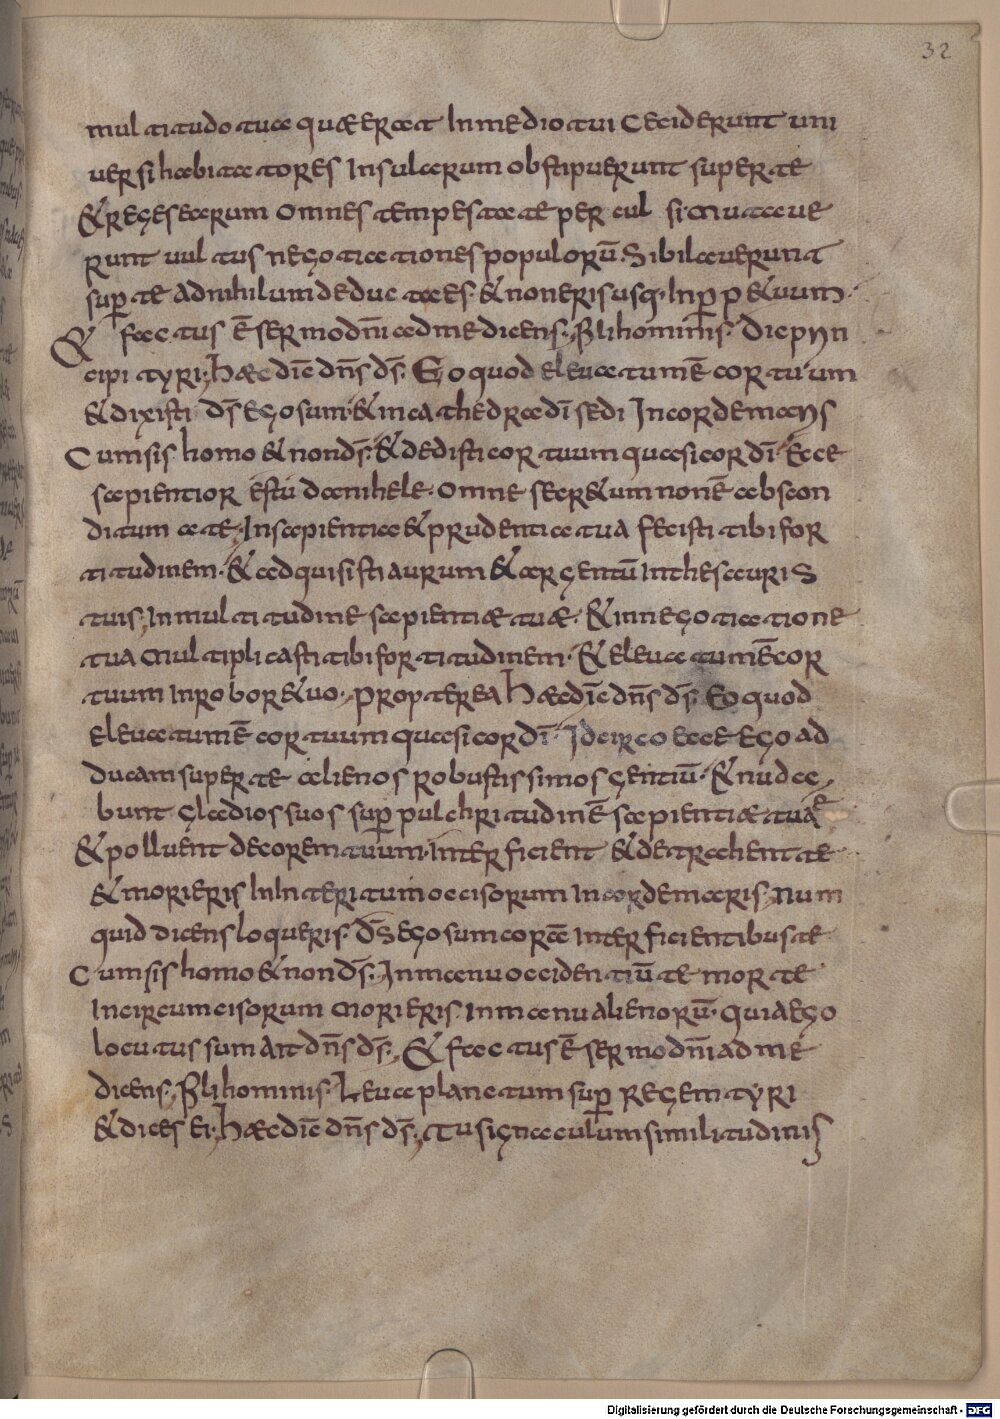 32
multitudo tua quæ erat In medio tui Ceciderunt uni
uersi habitatores Insularum obstipuerunt super te
& reges earum omnes tempestate per cul si. mutaue
runt uultus negotiationes populorū. Sibilauerunt
suꝑ te ad nihilum deductaes. & non eris usq. In ꝑp&uum.
& factus ē sermo dn̄i ad me dicens. fili hominis. Dic pryn
cipi tyri. Hæc dic̄ dn̄s ds̄. Eo quod eleuatum ē cor tuum
& dixisti ds̄ ego sum. & in cathedra dī sedi In corde marys
Cum sis homo & non ds̄. & dedisti cor tuum quasi cor dī. Ecce
sapientior es tu danihele. omne secr&um non ē abscon
ditum a te. In sapientia & prudentia tua fecisti tibi for
titudinem. & adquisisti aurum & argentū In thesauris
tuis. In multitudine sapientiæ tuæ. & in negotiatione
tua multiplicasti tibi fortitudinem. & eleuatum ē cor
tuum In robor& uo. propterea Hæc dic̄ dn̄s ds̄. Eo quod
eleuatum ē cor tuum quasi cor dī. Idcirco ecce ego ad
ducam super te alienos robustissimos gentiū. & nuda
bunt gladios suos suꝑ pulchritudinē sapientiæ tuæ
& polluent decorem tuum. Interficient & detrahent te
& morieris In Interitum occisorum In corde maris. Num
quid dicens loqueris. ds̄ ego sum coram̄ Interficientibus te
Cum sis homo & non ds̄. In manu occidentiū te morte
Incircumcisorum morieris In manu alienorū. quia ego
locutus sum ait dn̄s ds̄. & factus ē sermo dn̄i ad me
dicens. fili hominis. Leua planctum suꝑ regem tyri
& dices ei. Hæc dic̄ dn̄s ds̄. Tu signaculum similitudinis
Digitalisierung gefördert durch die Deutsche Forschungsgemeinschaft - DFG